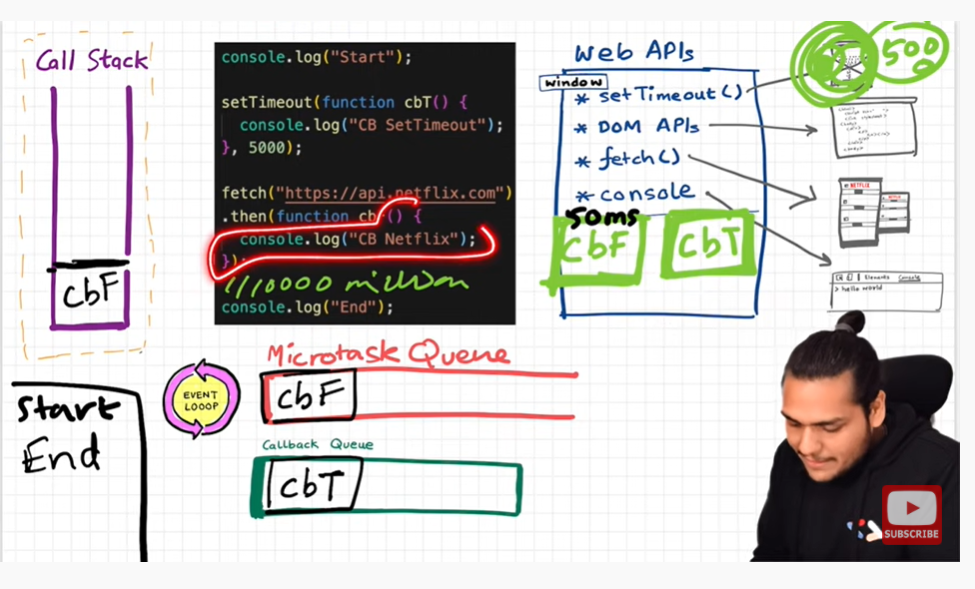 Call Stack
cbF
console.log("Start");
setTimeout(function cbT() {
console.log("CB SetTimeout");
}, 5000);
fetch("https://api.netflix.com")
.then(function cbF() {
console.log("CB Netflix");
});
10000 million
console.log("End");
Web APIs
window
* setTimeout()
* DOM APIs
* fetch()
* console
50ms
CbF
CbT
500
NETFLIX
Elements Console
> hello world
Microtask Queue
cbF
EVENT
LOOOP
Callback Queue
cbT
Start
End
SUBSCRIBE